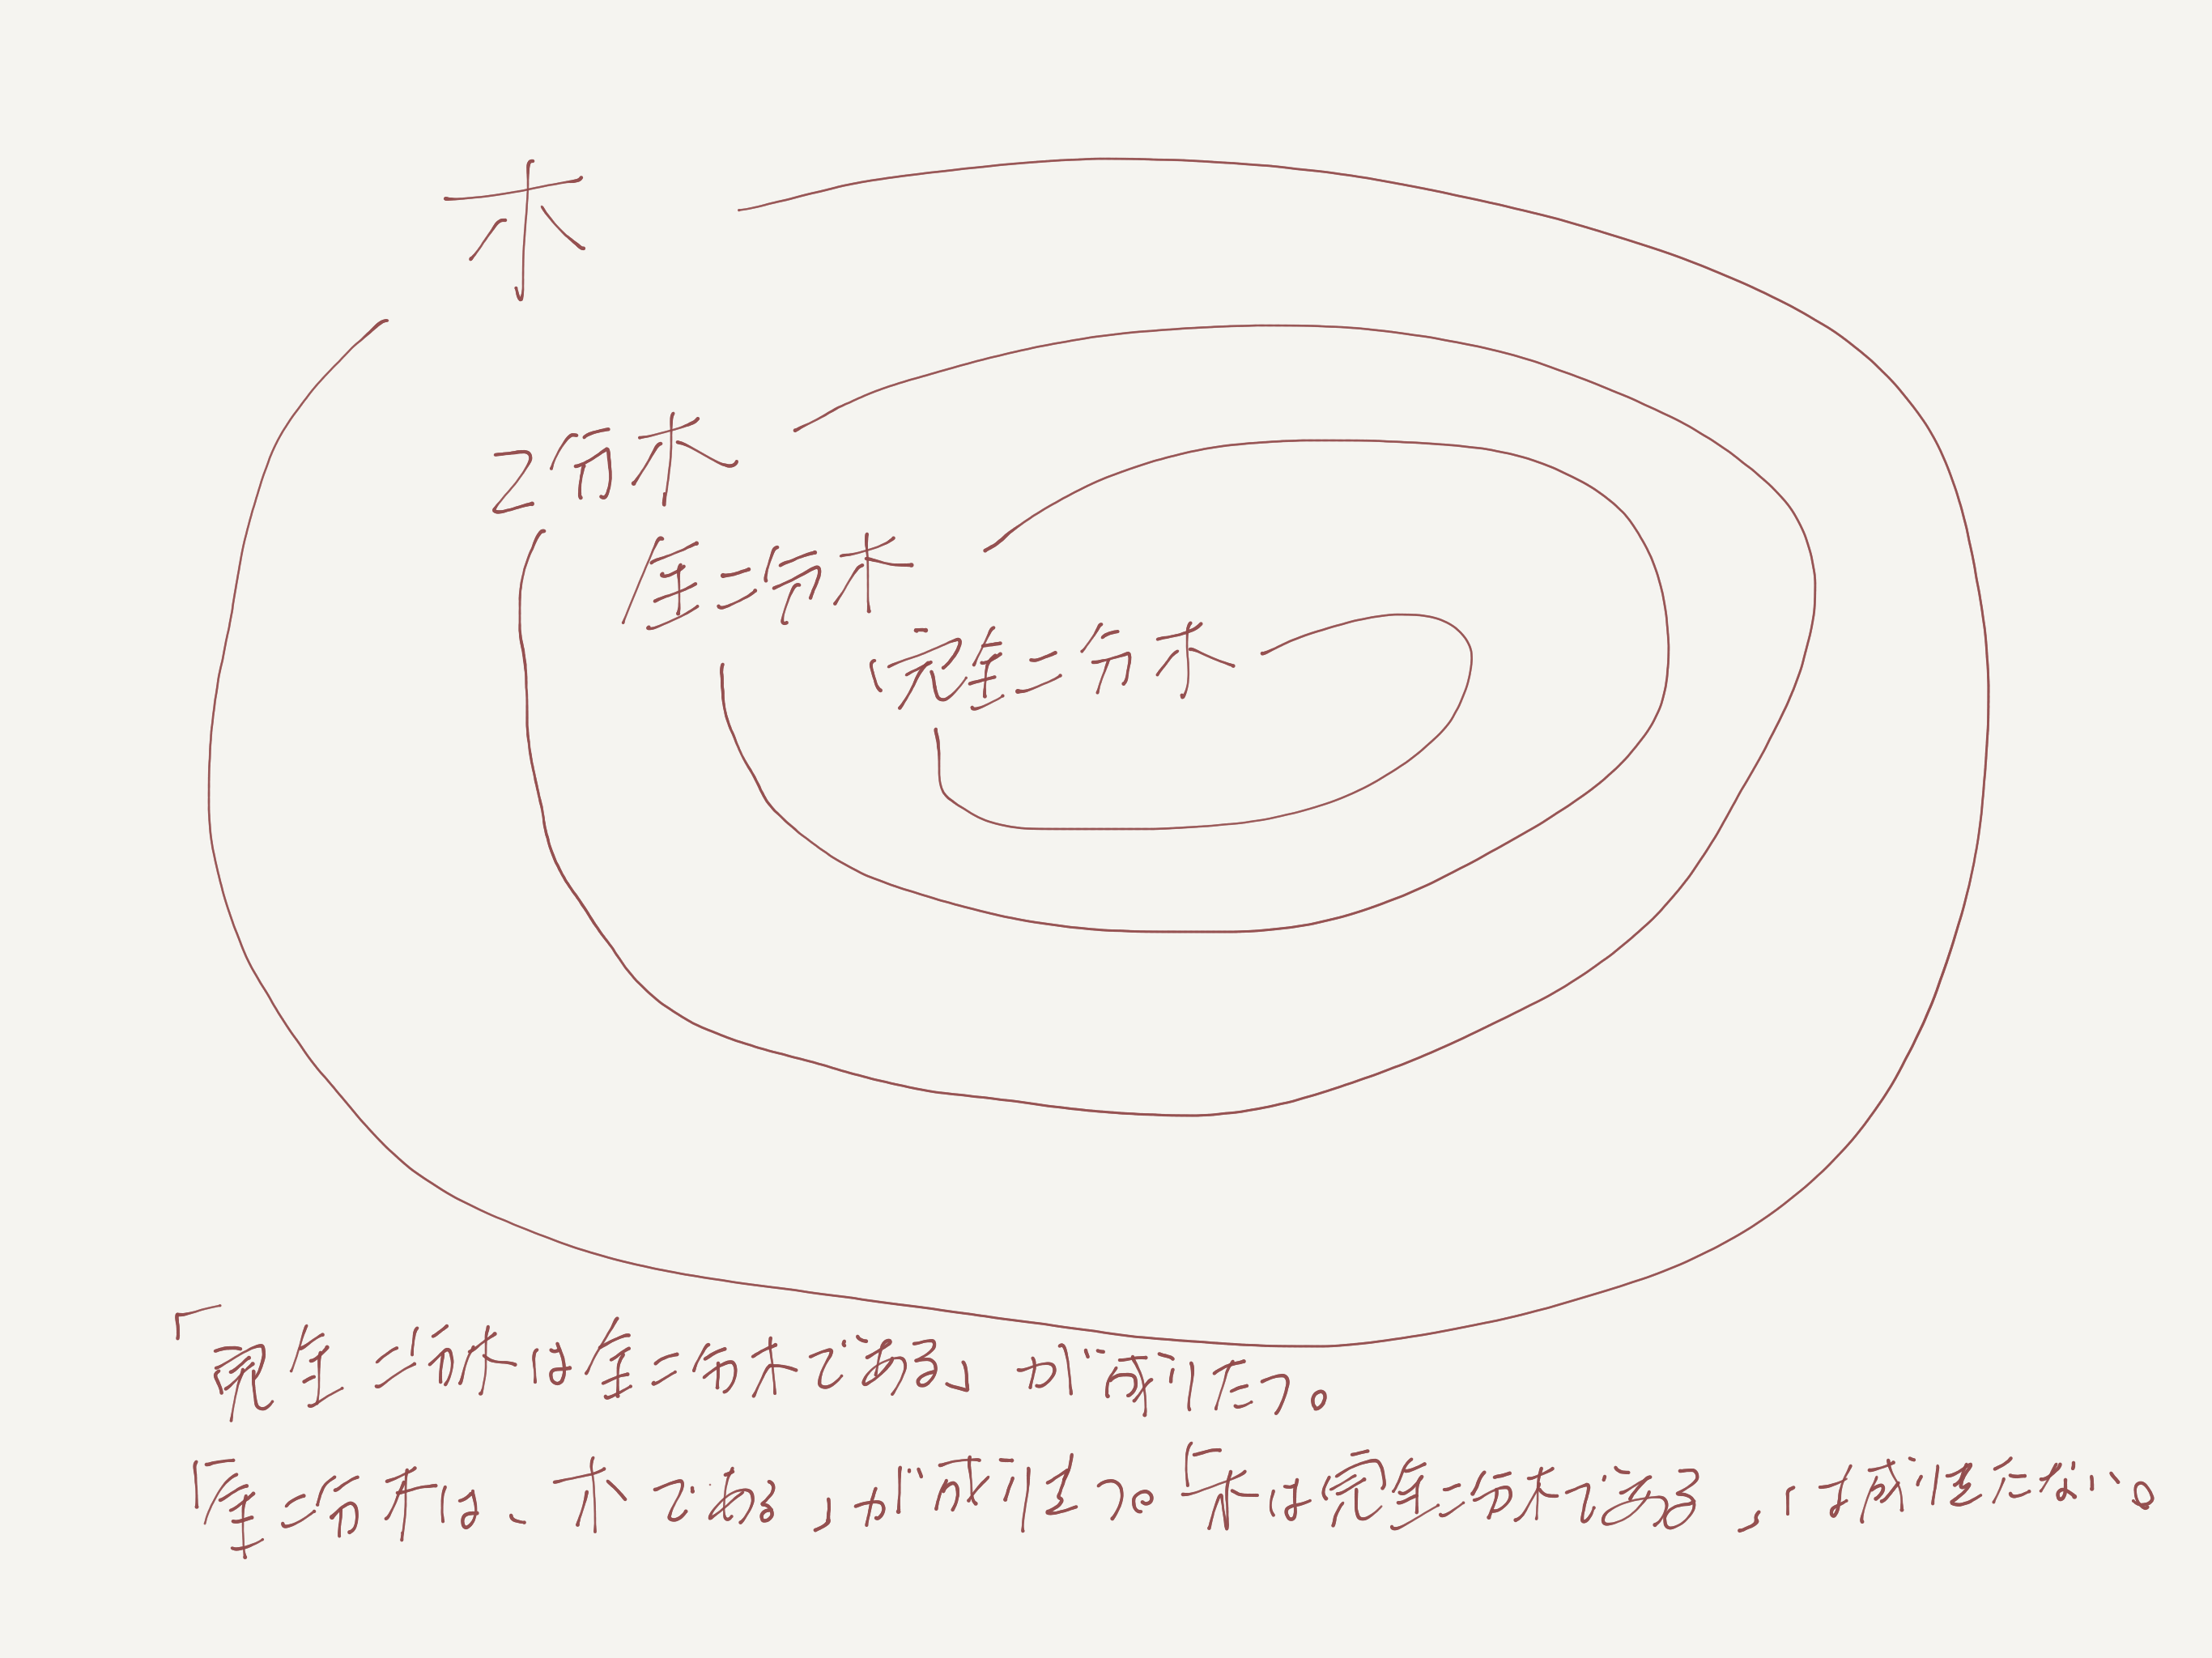 木
2分木
全二分木
完全二分木
「完全二分木は全二分木である」が成り立つ。
「全二分木は、木である」が成り立つ。「木は完全二分木である」は成り立たない。